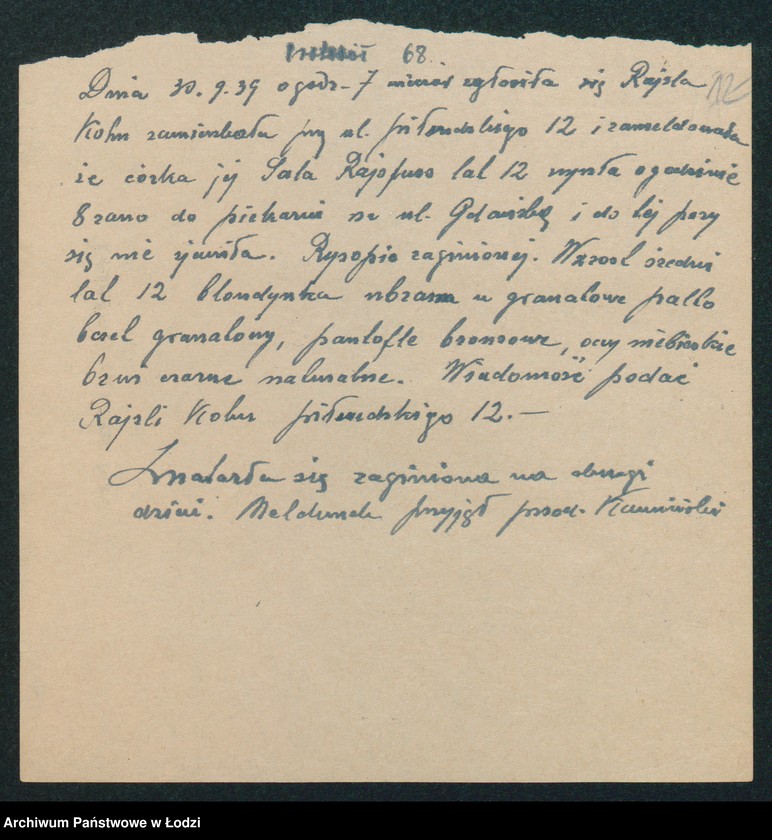 68
Dnia 30.9.39 o godz. 7 zgłosiła się Rajsla
Kohn zamieszkała przy ul. piłsudskiego 12 i zameldowała
że córka jej Sala lat 12 wyszła o godzinie
8 rano do piekarni na ul. Gdańską i do tej pory
się nie zjawiła. Rysopis zaginionej. Wzrost średni
lat 12 blondynka ubrana w granatowe palto
beret granatowy, pantofle bronzowe, oczy niebieskie
brwi czarne naturalne. Wiadomość podać
Rajsli Kohn piłsudskiego 12.—
Znalazła się zaginiona na drugi
dzień. Meldunek przyjął przod. Kamiński
Archiwum Państwowe w Łodzi